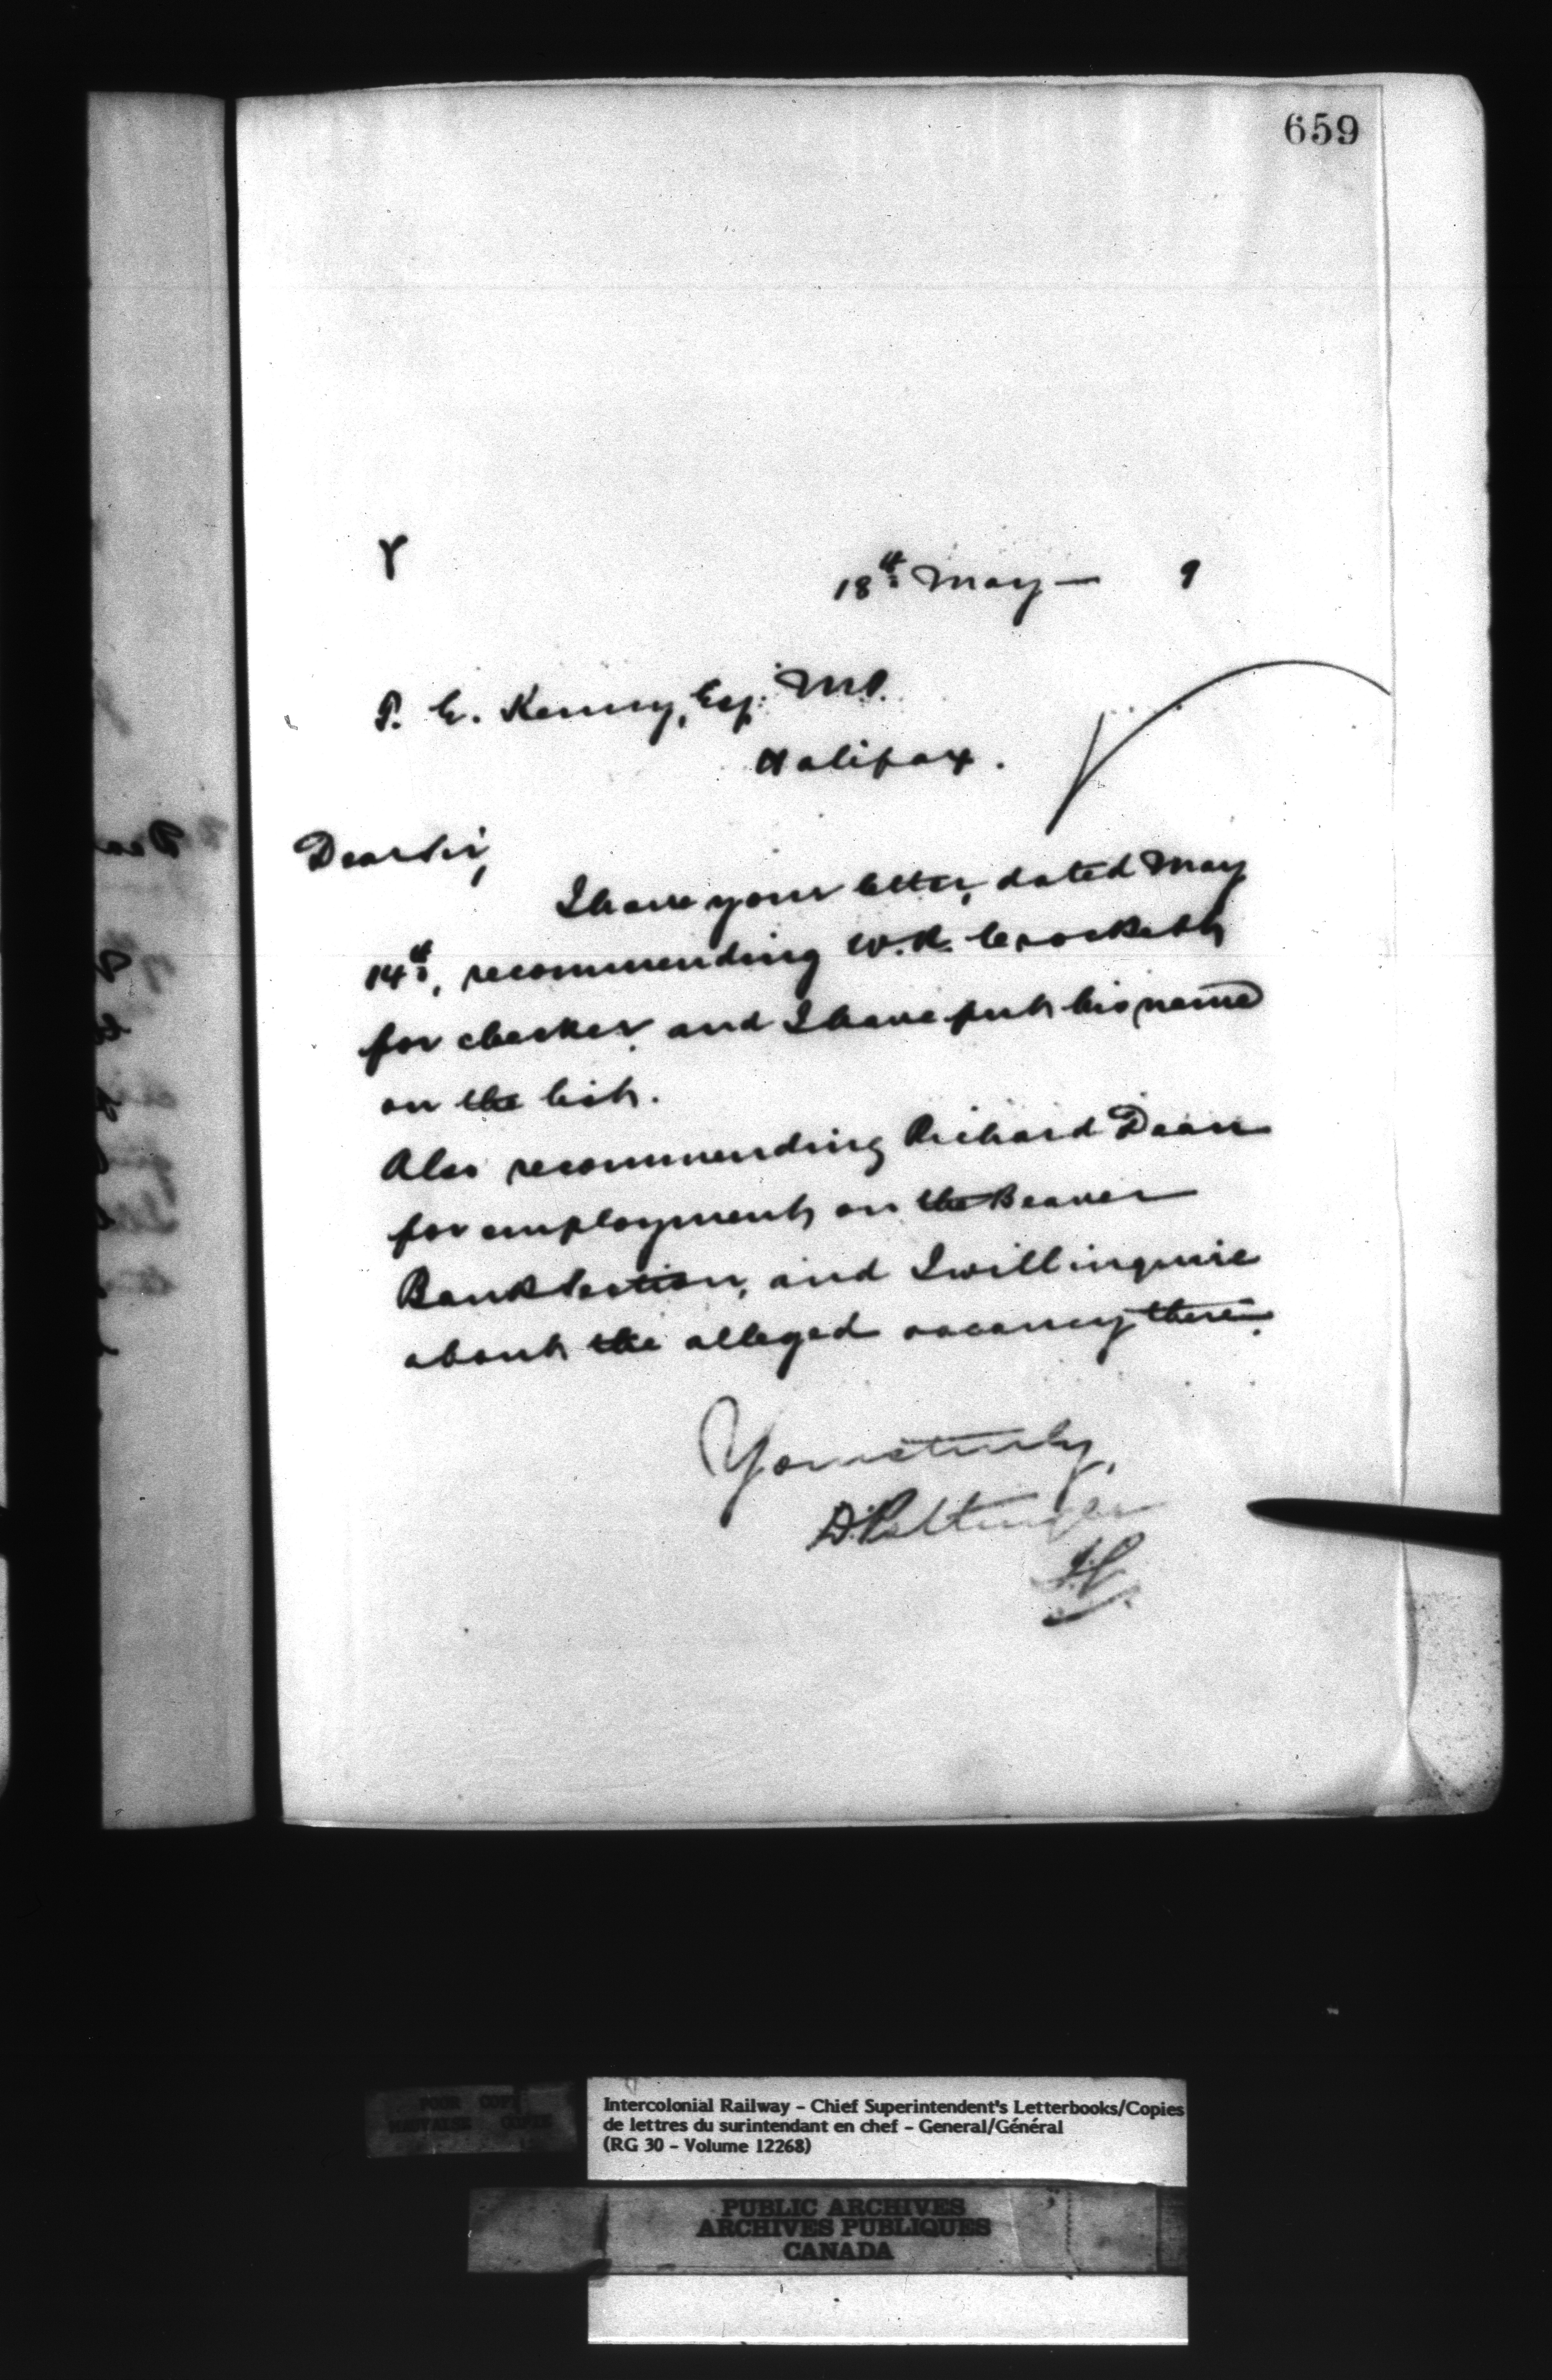 659
18th May — 9
P. E. Kenny, Esq. M.P.
Halifax.
Dear Sir,
I have your letter, dated May
14th, recommending W. R. Crockett
for checker, and I have put his name
on the list.
Also recommending Richard Dean
for employment on the Beaver
Bank Section, and I will inquire
about the alleged vacancy there.
Yours truly,
D. Pottinger
POOR COPY
MAUVAISE COPIE
Intercolonial Railway – Chief Superintendent's Letterbooks/Copies
de lettres du surintendant en chef – General/Général
(RG 30 – Volume 12268)
PUBLIC ARCHIVES
ARCHIVES PUBLIQUES
CANADA